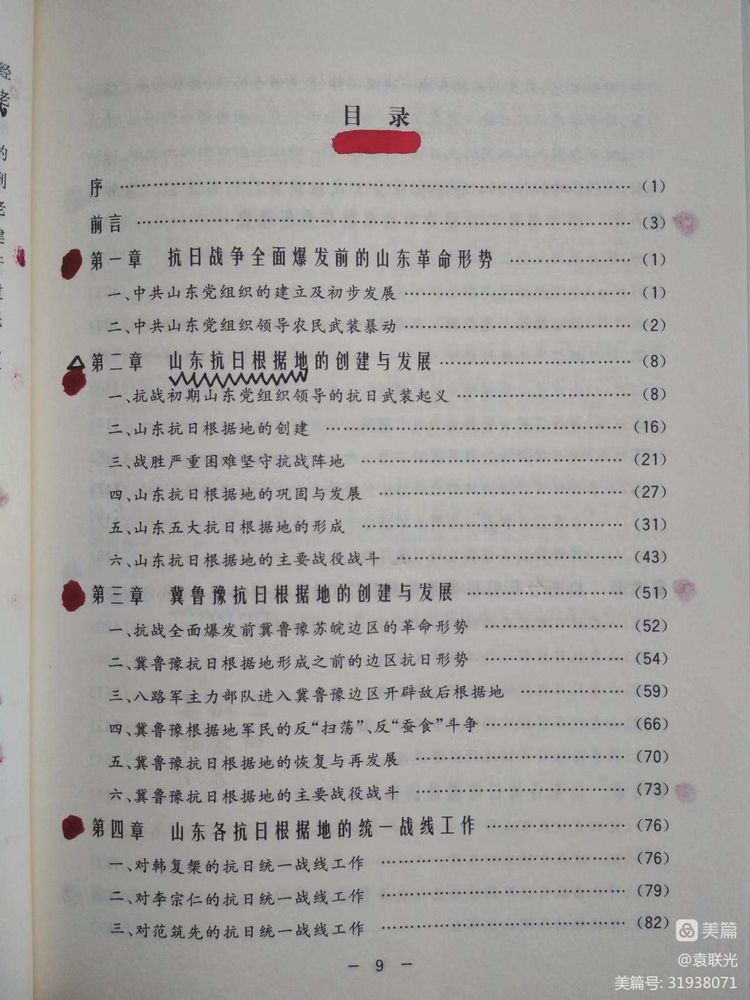 目 录
序 …………………………………………………… (1)
前言 …………………………………………………… (3)
第一章 抗日战争全面爆发前的山东革命形势 ……………… (1)
一、中共山东党组织的建立及初步发展 ……………………… (1)
二、中共山东党组织领导农民武装暴动 ……………………… (2)
第二章 山东抗日根据地的创建与发展 …………………… (8)
一、抗战初期山东党组织领导的抗日武装起义 ……………… (8)
二、山东抗日根据地的创建 ………………………………… (16)
三、战胜严重困难坚守抗战阵地 …………………………… (21)
四、山东抗日根据地的巩固与发展 ………………………… (27)
五、山东五大抗日根据地的形成 …………………………… (31)
六、山东抗日根据地的主要战役战斗 ……………………… (43)
第三章 冀鲁豫抗日根据地的创建与发展 ………………… (51)
一、抗战全面爆发前冀鲁豫苏皖边区的革命形势 ………… (52)
二、冀鲁豫抗日根据地形成之前的边区抗日形势 ………… (54)
三、八路军主力部队进入冀鲁豫边区开辟敌后根据地 …… (59)
四、冀鲁豫根据地军民的反“扫荡”、反“蚕食”斗争 ……… (66)
五、冀鲁豫抗日根据地的恢复与再发展 …………………… (70)
六、冀鲁豫抗日根据地的主要战役战斗 …………………… (73)
第四章 山东各抗日根据地的统一战线工作 ……………… (76)
一、对韩复榘的抗日统一战线工作 ………………………… (76)
二、对李宗仁的抗日统一战线工作 ………………………… (79)
三、对范筑先的抗日统一战线工作 ………………………… (82)
— 9 —
美篇
@袁联光
美篇号: 31938071